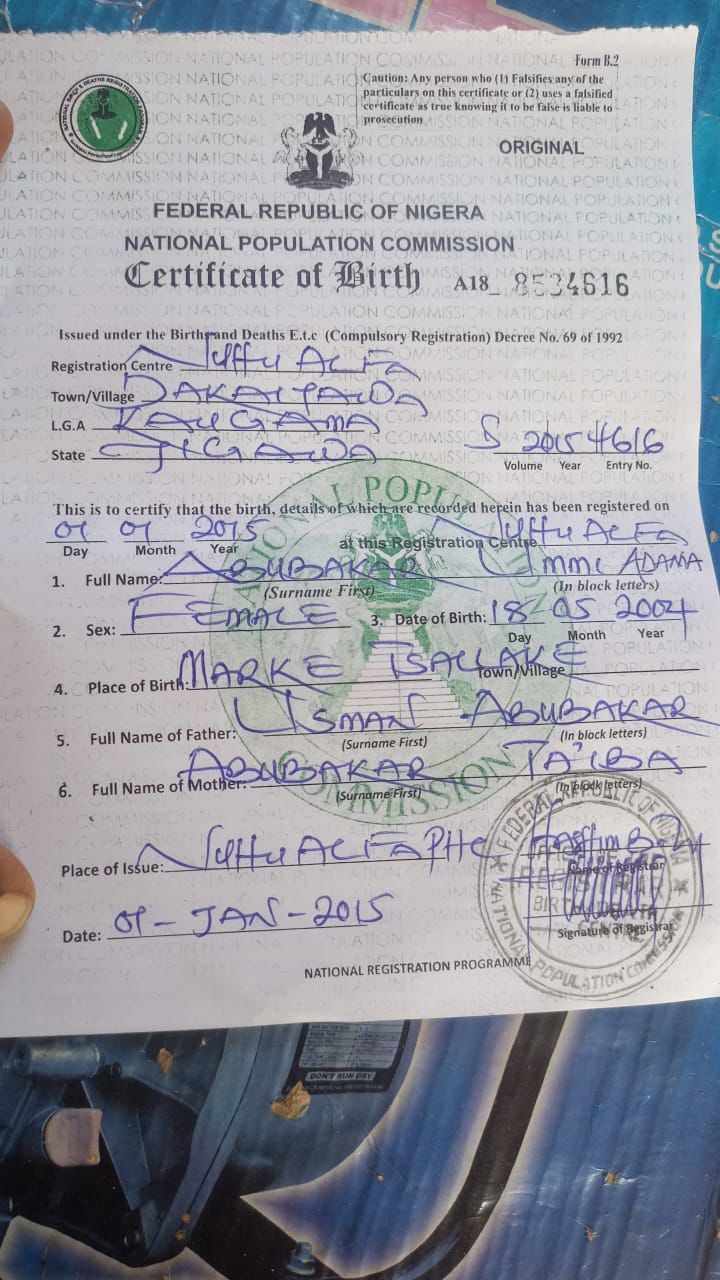 Form B.2
Caution: Any person who (1) Falsifies any of the
particulars on this certificate or (2) uses a falsified
certificate as true knowing it to be false is liable to
prosecution
ORIGINAL
FEDERAL REPUBLIC OF NIGERA
NATIONAL POPULATION COMMISSION
Certificate of Birth A18_ 8534616
Issued under the Birth and Deaths E.t.c (Compulsory Registration) Decree No. 69 of 1992
Registration Centre
Town/Village
L.G.A KAUGAMA
State JIGAWA S 2015 4616
Volume Year Entry No.
This is to certify that the birth, details of which are recorded herein has been registered on
01 01 2015 at this Registration Centre
Day Month Year
1. Full Name: ABUBAKAR UMMI ADAMA
(Surname First) (In block letters)
2. Sex: FEMALE 3. Date of Birth: 18 05 2004
Day Month Year
4. Place of Birth: MARKE TSALLAKE Town/Village
5. Full Name of Father: USMAN ABUBAKAR
(Surname First) (In block letters)
6. Full Name of Mother: ABUBAKAR TA'IBA
(Surname First) (In block letters)
Place of Issue:
Name of Registrar
Date: 01-JAN-2015
Signature of Registrar
NATIONAL REGISTRATION PROGRAMME
NATIONAL POPULATION COMMISSION
FEDERAL REPUBLIC OF NIGERIA
DON'T RUN DRY